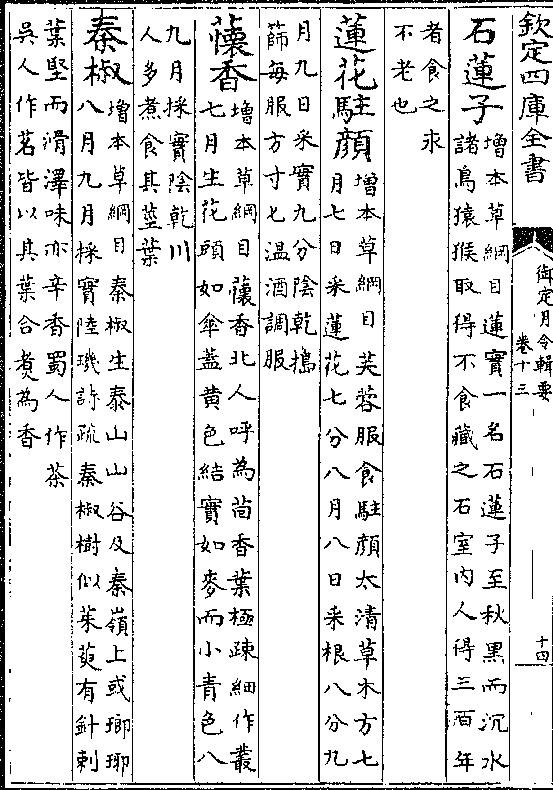 欽定四庫全書
御定月令輯要
卷十三
十四
石蓮子
增本草綱目蓮實一名石蓮子至秋黑而沉水
諸鳥猿猴取得不食藏之石室內人得三百年
者食之永
不老也
蓮花駐顔
增本草綱目芙蓉服食駐顔太清草木方七
月七日采蓮花七分八月八日采根八分九
月九日采實九分陰乾搗
篩每服方寸匕温酒調服
蘹香
增本草綱目蘹香北人呼為茴香葉極疎細作叢
七月生花頭如傘蓋黄色結實如麥而小青色八
九月採實陰乾川
人多煮食其莖葉
秦椒
增本草綱目秦椒生泰山山谷及秦嶺上或瑯琊
八月九月採實陸璣詩疏秦椒樹似茱萸有針刺
葉堅而滑澤味亦辛香蜀人作茶
吳人作茗皆以其葉合煑為香